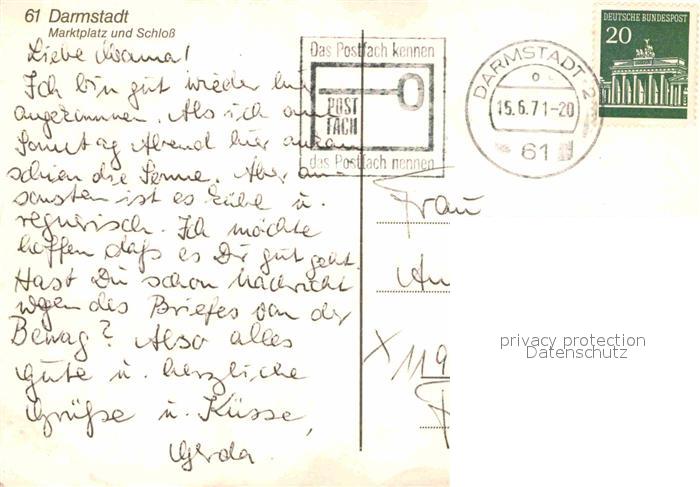 61 Darmstadt
Marktplatz und Schloß
Liebe Mama!
Ich bin gut wieder hier
angekommen. Als ich am
Sonntag Abend hier ankam
schien die Sonne. Aber an-
sonsten ist es kühl u.
regnerisch. Ich möchte
hoffen daß es Dir gut geht.
Hast Du schon Nachricht
wegen des Briefes von der
Bewag? Also alles
Gute u. herzliche
Grüße u. Küsse,
Gerda.
Das Postfach kennen
POST
FACH
das Postfach nennen
DARMSTADT 2
15.6.71-20
61
DEUTSCHE BUNDESPOST
20
Frau
An
X 119
privacy protection
Datenschutz